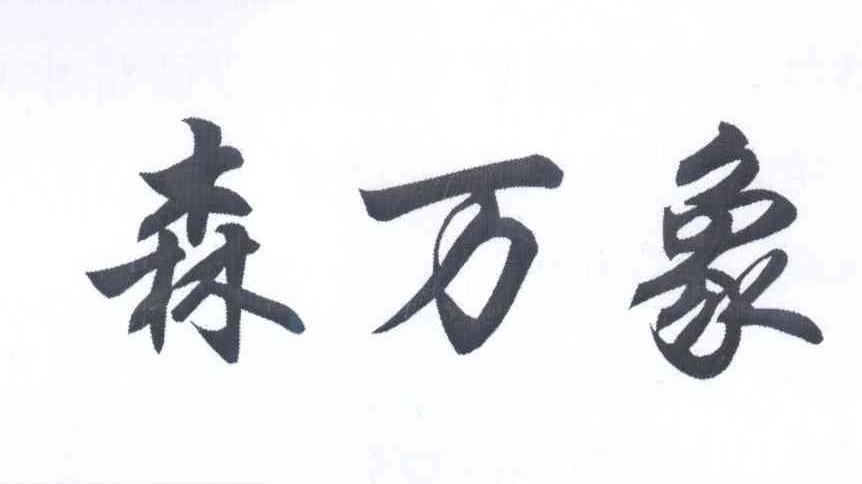 森万象